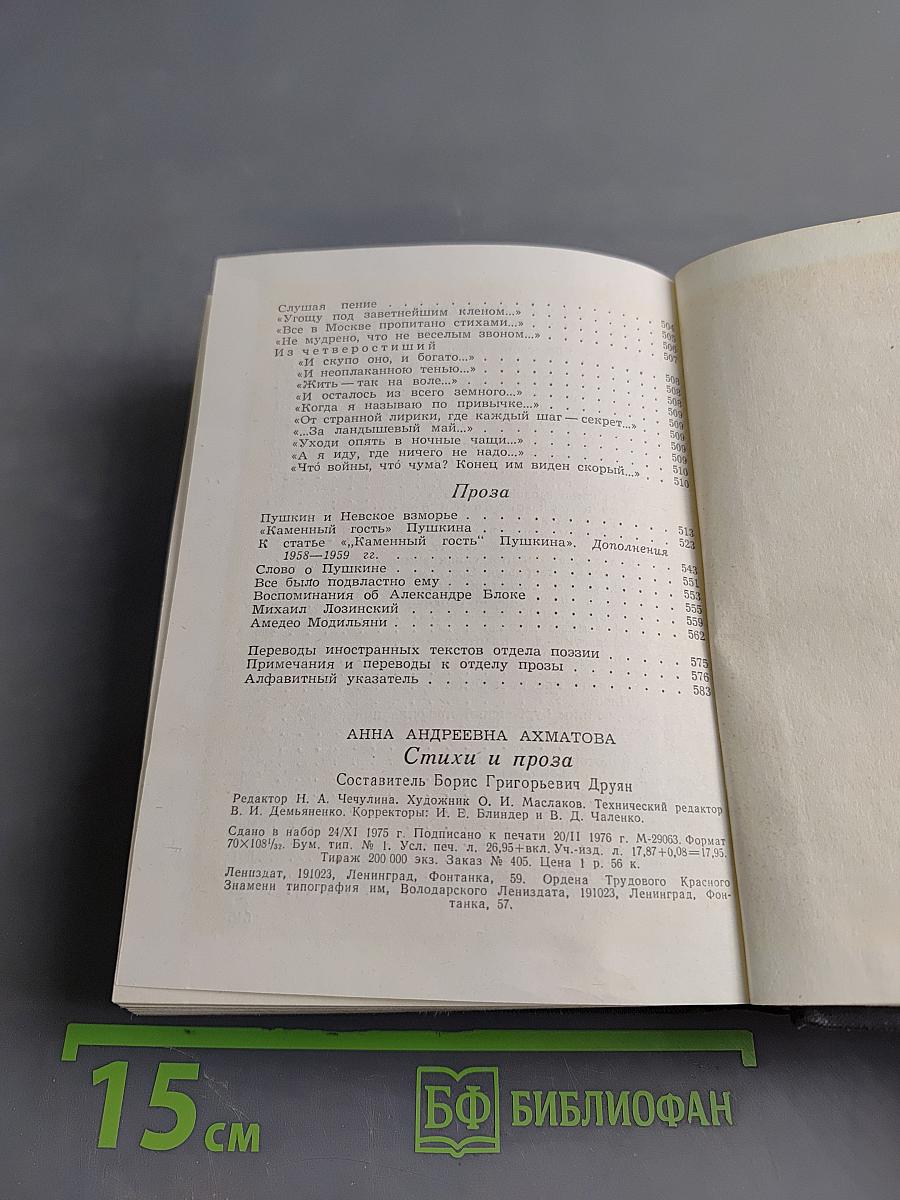 Слушая пение . . . . . . . . . . . . 504
«Угощу под заветнейшим кленом...» . . . . . . . . 505
«Все в Москве пропитано стихами...» . . . . . . . . 506
«Не мудрено, что не веселым звоном...» . . . . . . . 507
Из четверостиший
«И скупо оно, и богато...» . . . . . . . . . 508
«И неоплаканною тенью...» . . . . . . . . . 508
«Жить — так на воле...» . . . . . . . . . . 508
«И осталось из всего земного...» . . . . . . . 509
«Когда я называю по привычке...» . . . . . . . 509
«От странной лирики, где каждый шаг — секрет...» . . 509
«...За ландышевый май...» . . . . . . . . . 509
«Уходи опять в ночные чащи...» . . . . . . . 509
«А я иду, где ничего не надо...» . . . . . . . 510
«Что́ войны, что́ чума? Конец им виден скорый...» . . 510
Проза
Пушкин и Невское взморье . . . . . . . . . . 513
«Каменный гость» Пушкина . . . . . . . . . . 523
К статье «„Каменный гость“ Пушкина». Дополнения
1958—1959 гг. . . . . . . . . . . . . 543
Слово о Пушкине . . . . . . . . . . . . 551
Все было подвластно ему . . . . . . . . . . 553
Воспоминания об Александре Блоке . . . . . . . . 555
Михаил Лозинский . . . . . . . . . . . . 559
Амедео Модильяни . . . . . . . . . . . . 562
Переводы иностранных текстов отдела поэзии . . . . . 575
Примечания и переводы к отделу прозы . . . . . . . 576
Алфавитный указатель . . . . . . . . . . . 583
АННА АНДРЕЕВНА АХМАТОВА
Стихи и проза
Составитель Борис Григорьевич Друян
Редактор Н. А. Чечулина. Художник О. И. Маслаков. Технический редактор
В. И. Демьяненко. Корректоры: И. Е. Блиндер и В. Д. Чаленко.
Сдано в набор 24/XI 1975 г. Подписано к печати 20/II 1976 г. М-29063. Формат
70×108¹/₃₂. Бум. тип. № 1. Усл. печ. л. 26,95+вкл. Уч.-изд. л. 17,87+0,08=17,95.
Тираж 200 000 экз. Заказ № 405. Цена 1 р. 56 к.
Лениздат, 191023, Ленинград, Фонтанка, 59. Ордена Трудового Красного
Знамени типография им, Володарского Лениздата, 191023, Ленинград, Фон-
танка, 57.
15 см
БФ БИБЛИОФАН